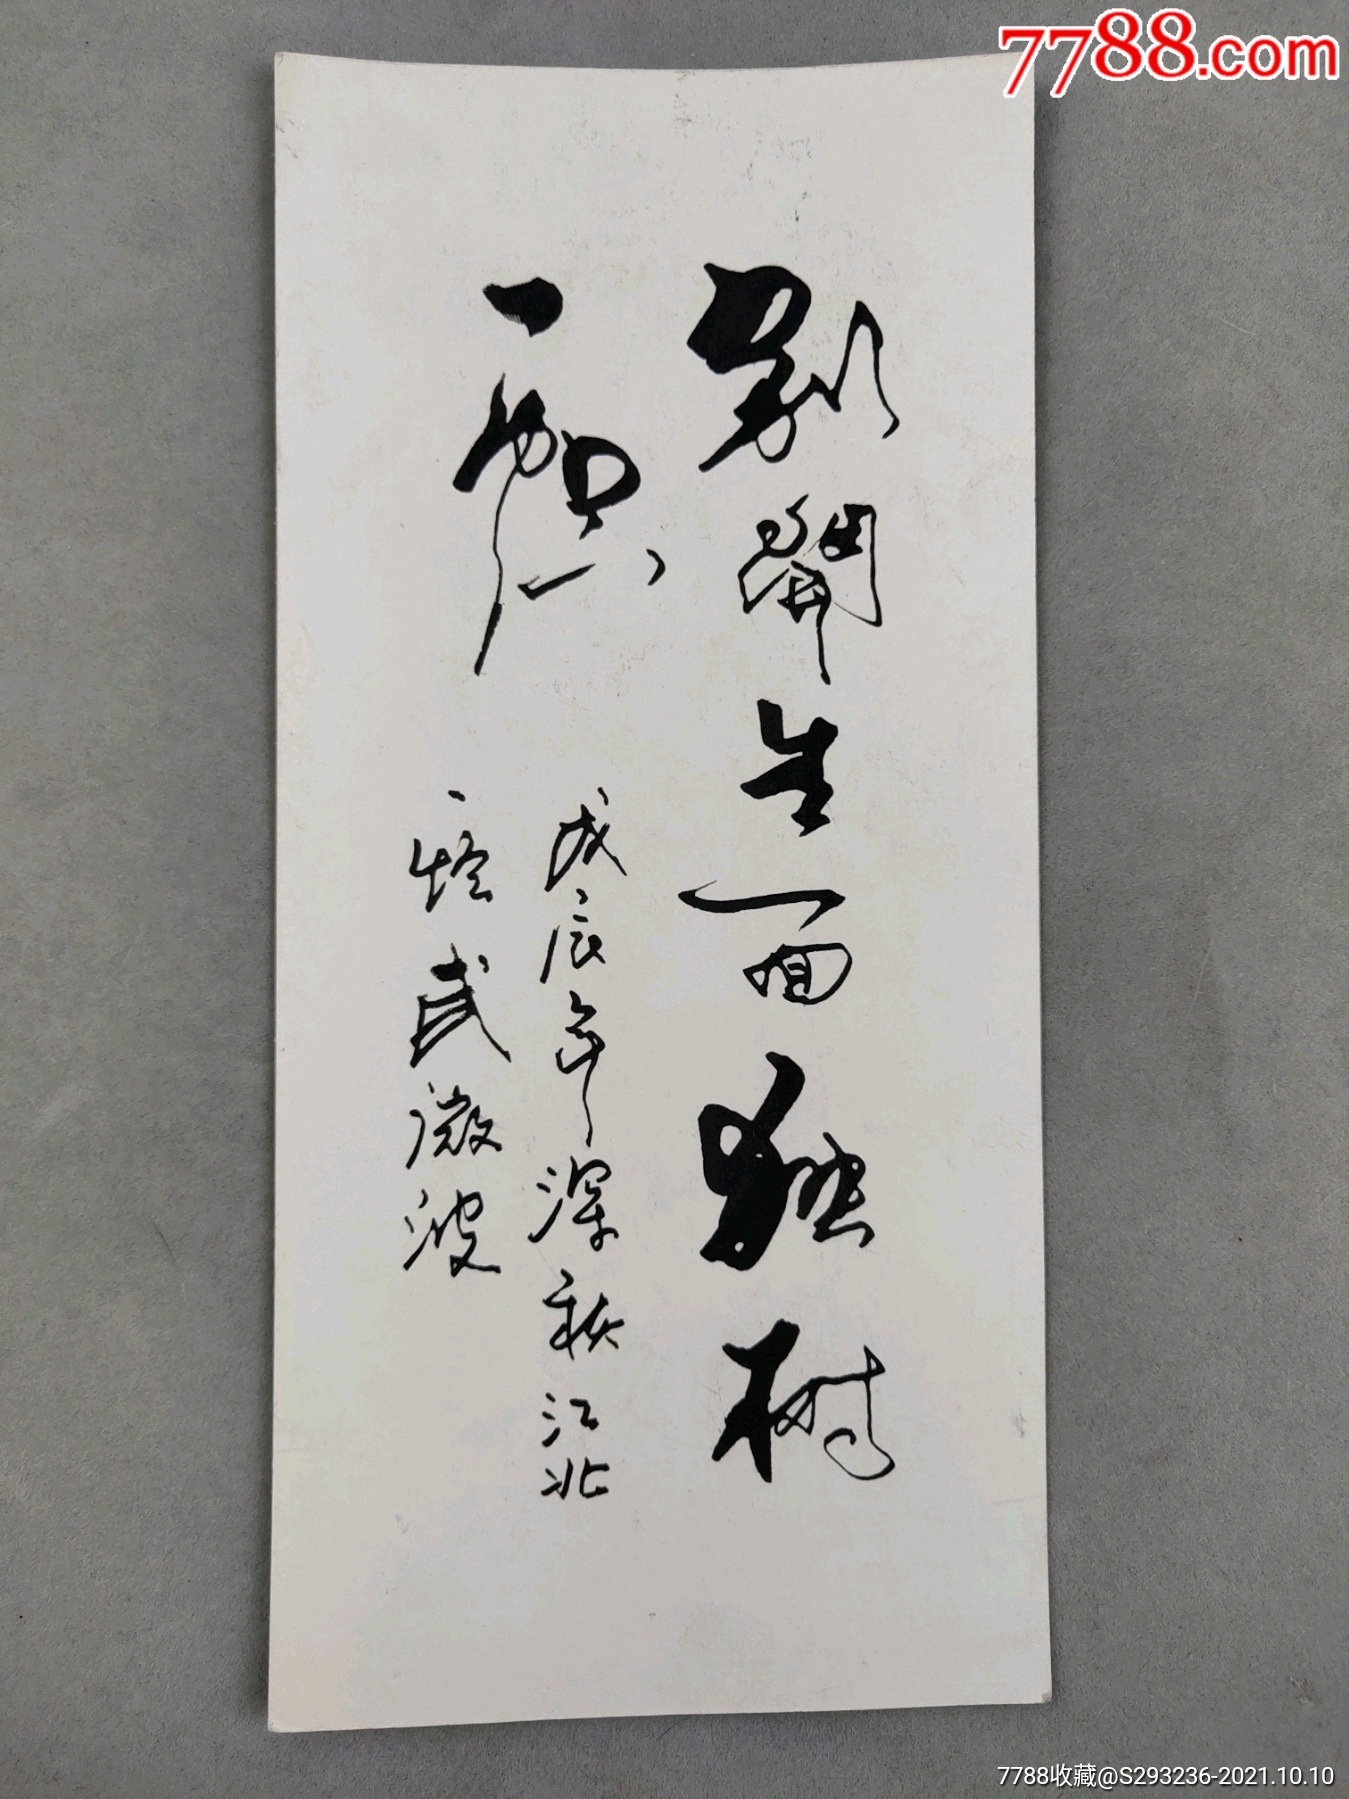 7788.com
别開生面独树
一帜
戊辰年深秋江北
一怪武微波
7788收藏@S293236-2021.10.10